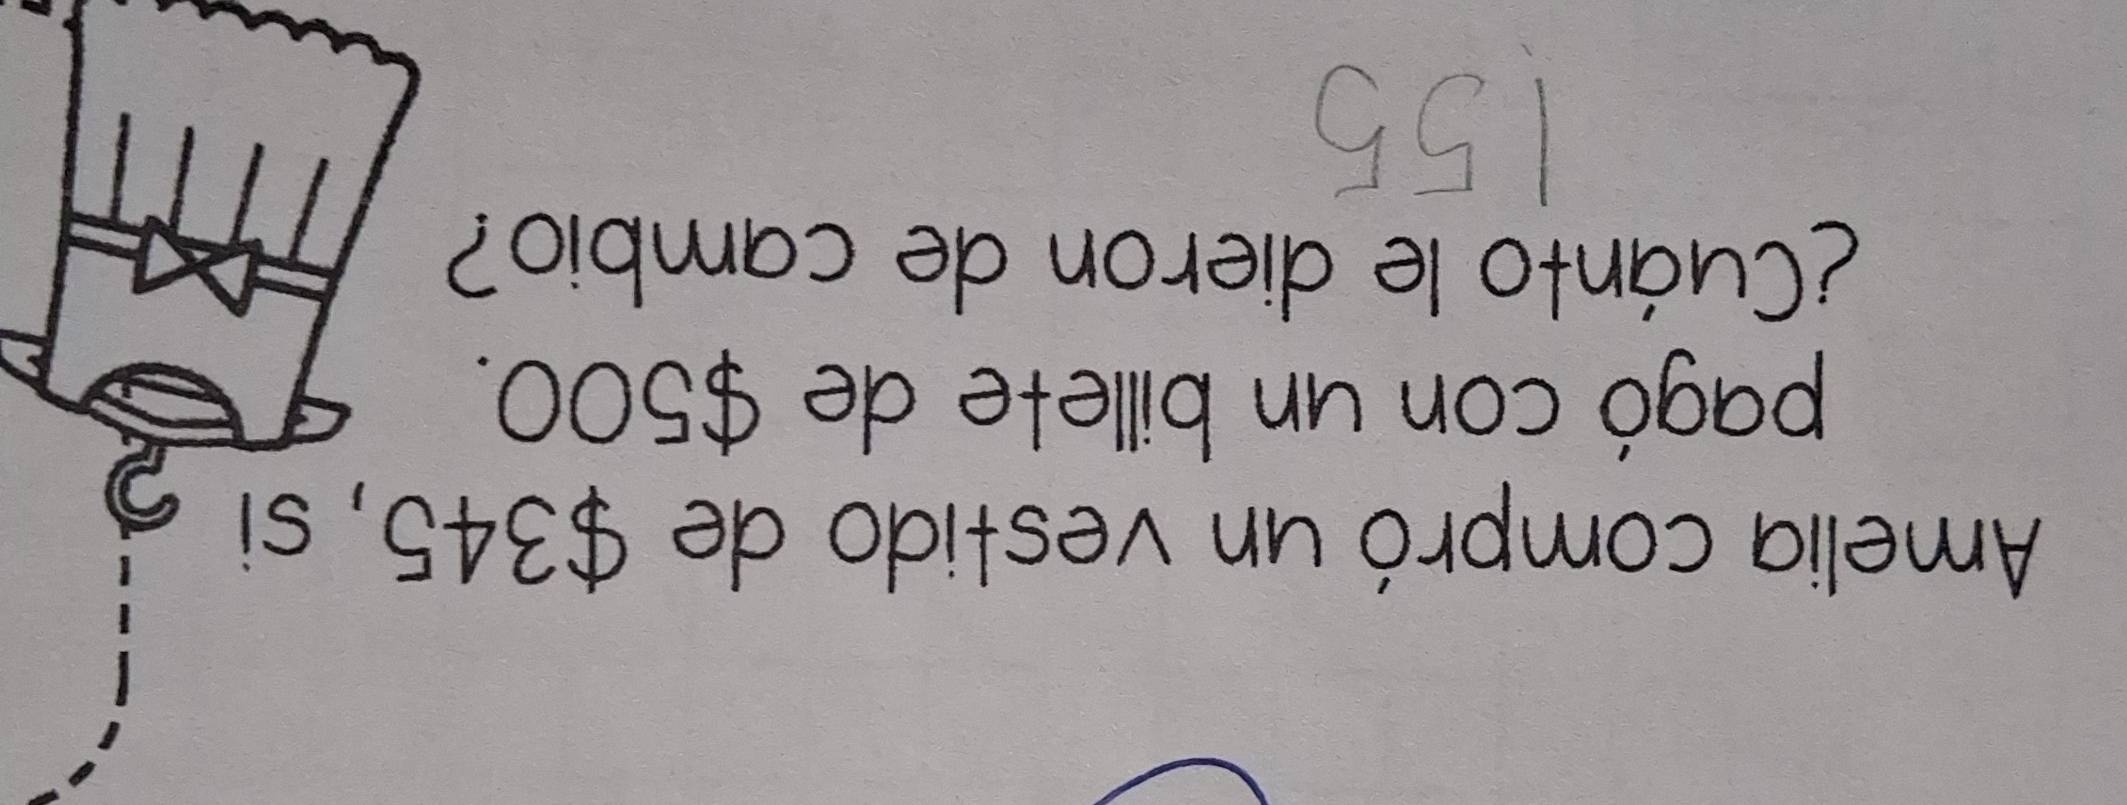 Amelia compró un vestido de $345, si
pagó con un billete de $500.
¿Cuánto le dieron de cambio?
155